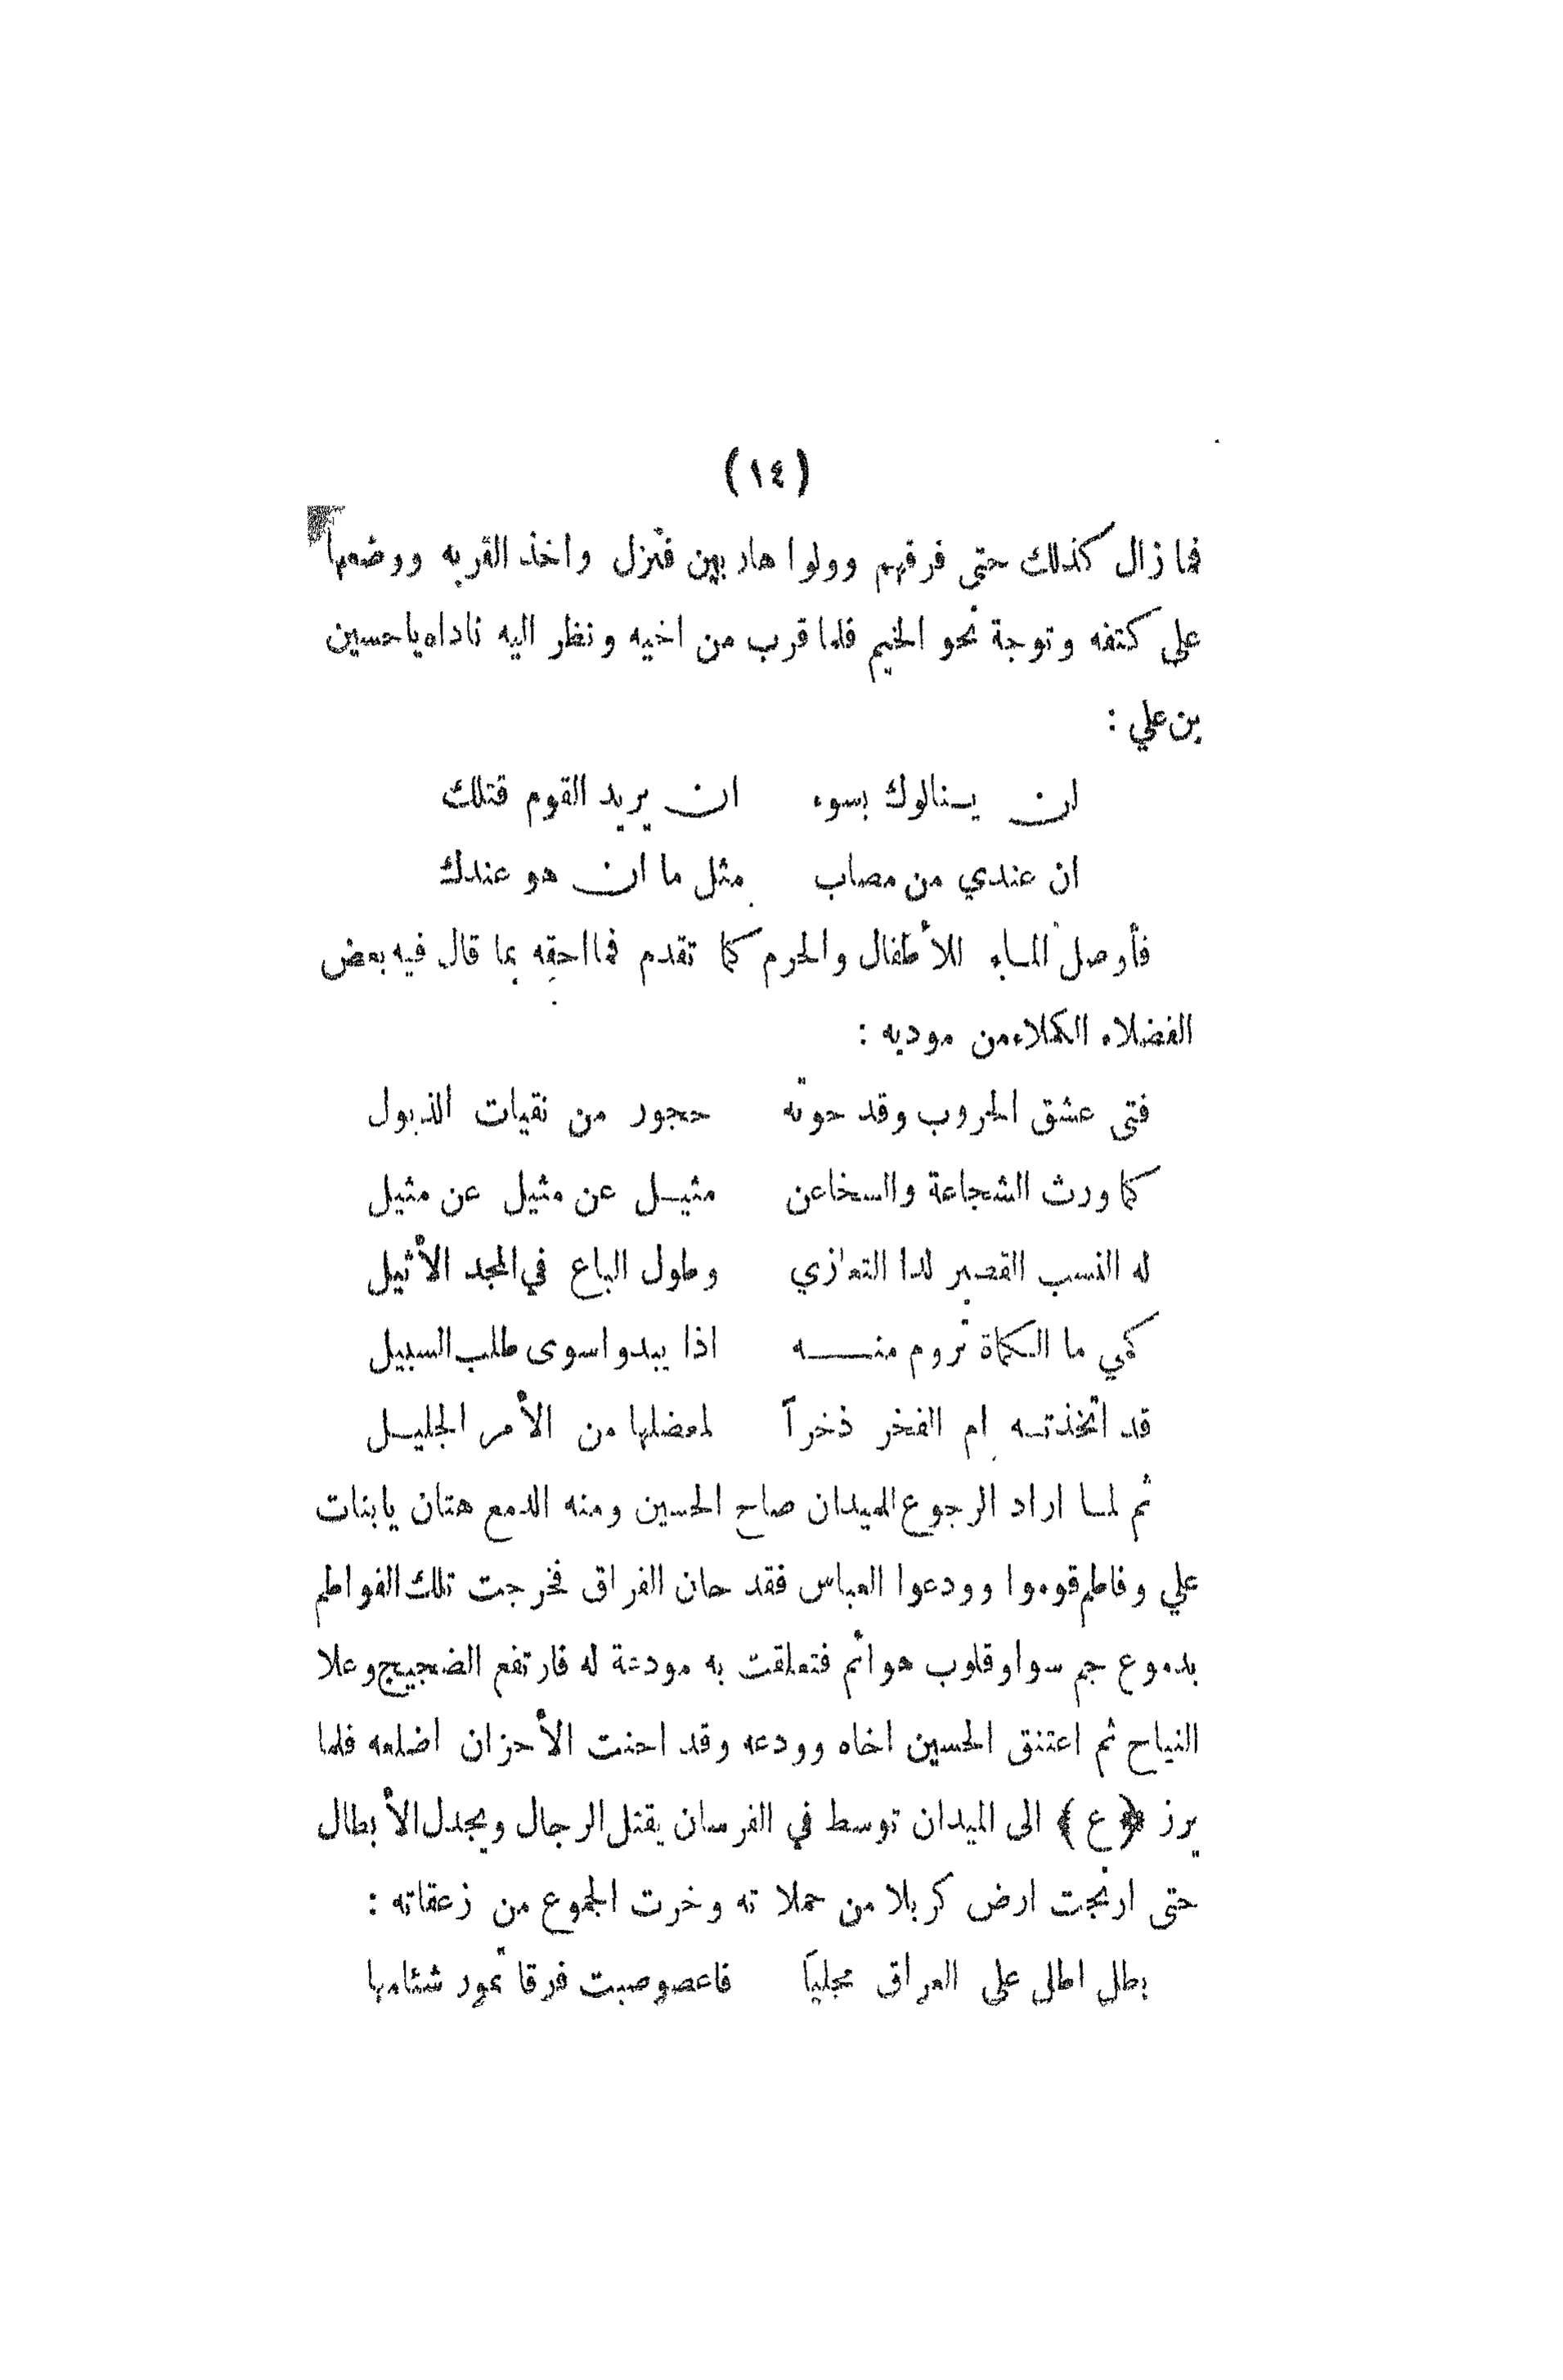 (١٤)
فما زال كذلك حتى فرقهم وولوا هاربين فنزل واخذ القربه ووضعها
على كتفه وتوجة نحو الخيم فلما قرب من اخيه ونظر اليه ناداه ياحسين
بن علي :
ان ينالوك بسوء    ان يريد القوم قتلك
ان عندي من مصاب    مثل ما ان هو عندك
فأوصل الماء للأطفال والحرم كما تقدم فما احقه بما قال فيه بعض
الفضلاء الكملاء من موديه :
فتى عشق الحروب وقد حوته    حجور من نقيات الذبول
كما ورث الشجاعة والسخا عن    مثيل عن مثيل عن مثيل
له النسب القصير لدا التعازي    وطول الباع في المجد الأثيل
كمي ما الكماة تروم منه    اذا يبدوا سوى طلب السبيل
قد اتخذته ام الفخر ذخراً    لمعضلها من الأمر الجليل
ثم لما اراد الرجوع للميدان صاح الحسين ومنه الدمع هتان يا بنات
علي وفاطم قوموا وودعوا العباس فقد حان الفراق فخرجت تلك الفواطم
بدموع جم سوا وقلوب هوائم فتعلقت به مودعة له فارتفع الضجيج وعلا
النياح ثم اعتنق الحسين اخاه وودعه وقد احنت الأحزان اضلعه فلما
برز ﴿ع﴾ الى الميدان توسط في الفرسان يقتل الرجال ويجدل الأبطال
حتى ارتجت ارض كربلا من حملاته وخرت الجموع من زعقاته :
بطل اطل على العراق مجلياً    فاعصوصبت فرقا تمور شئامها